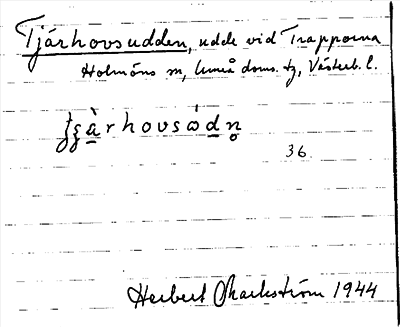 Tjärhovsudden, udde vid Trapporna
Holmöns sn, Umeå doms. tg, Västerb. l.
tʂä̀rhovsódn̥
36
Herbert Markström 1944